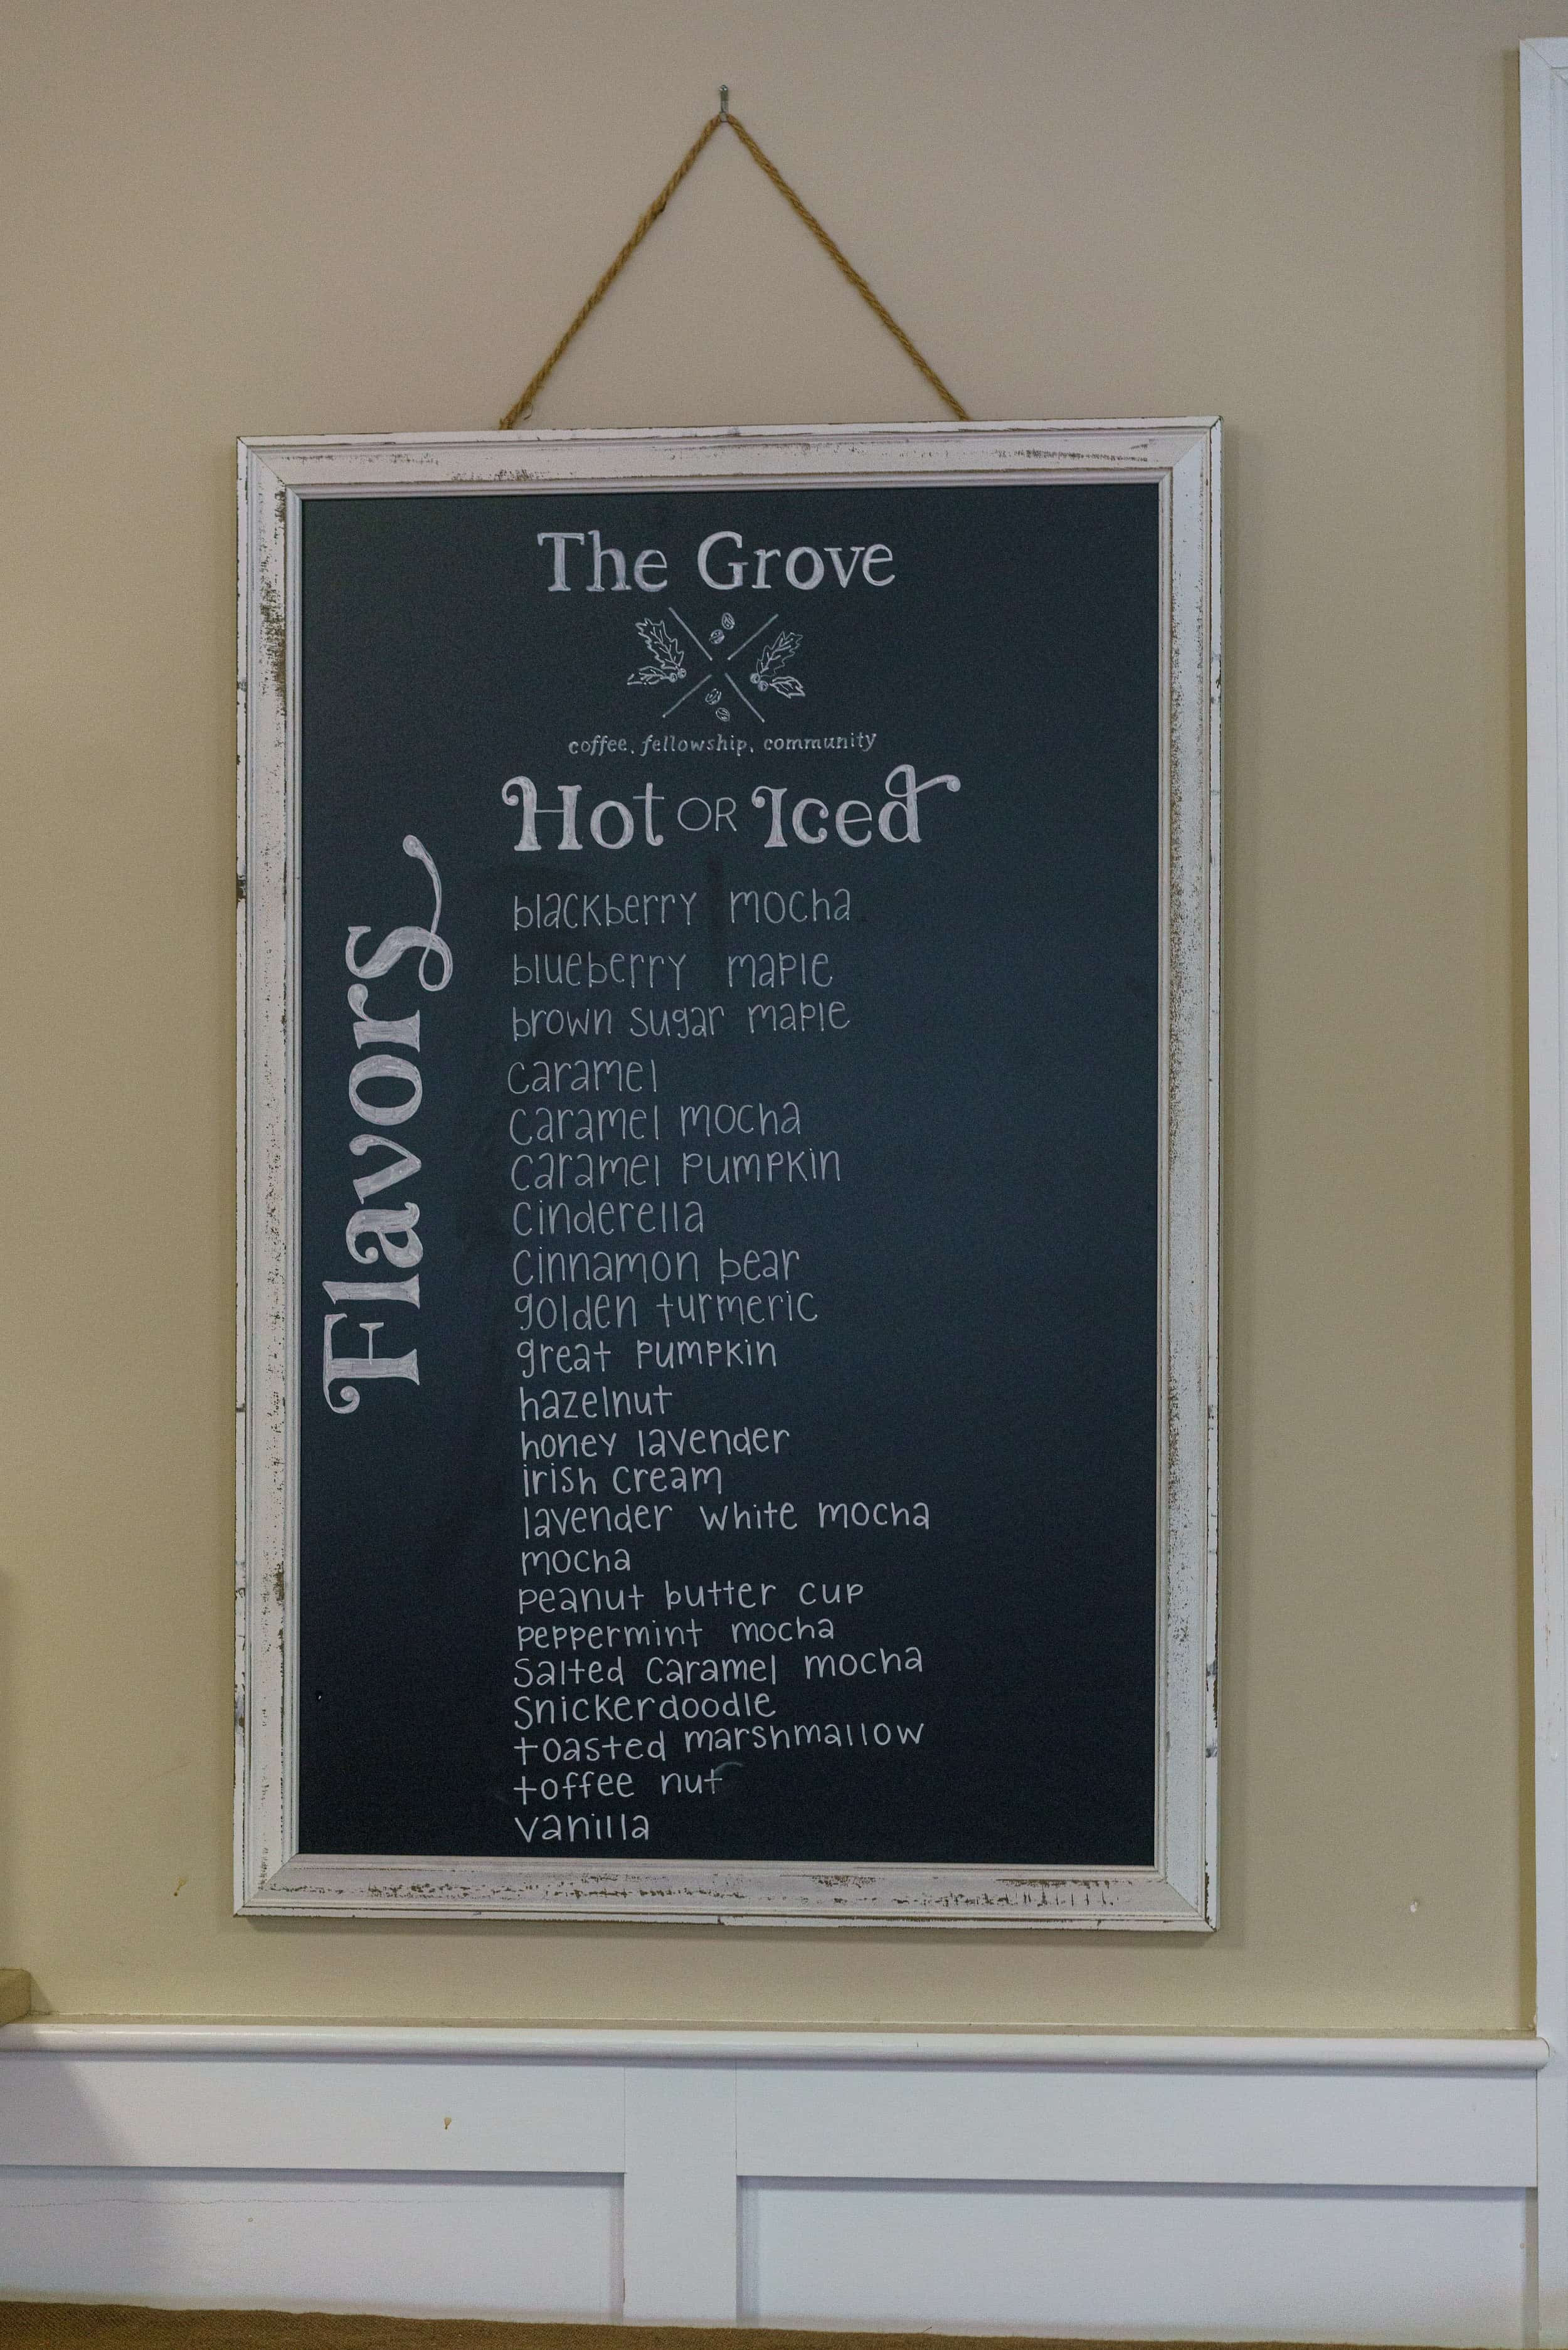 The Grove
coffee, fellowship, community
Hot OR Iced
Flavors
blackberry mocha
blueberry maple
brown sugar maple
caramel
caramel mocha
caramel pumpkin
Cinderella
Cinnamon bear
golden turmeric
great pumpkin
hazelnut
honey lavender
irish cream
lavender white mocha
mocha
peanut butter cup
peppermint mocha
Salted Caramel mocha
Snickerdoodle
toasted marshmallow
toffee nut
vanilla